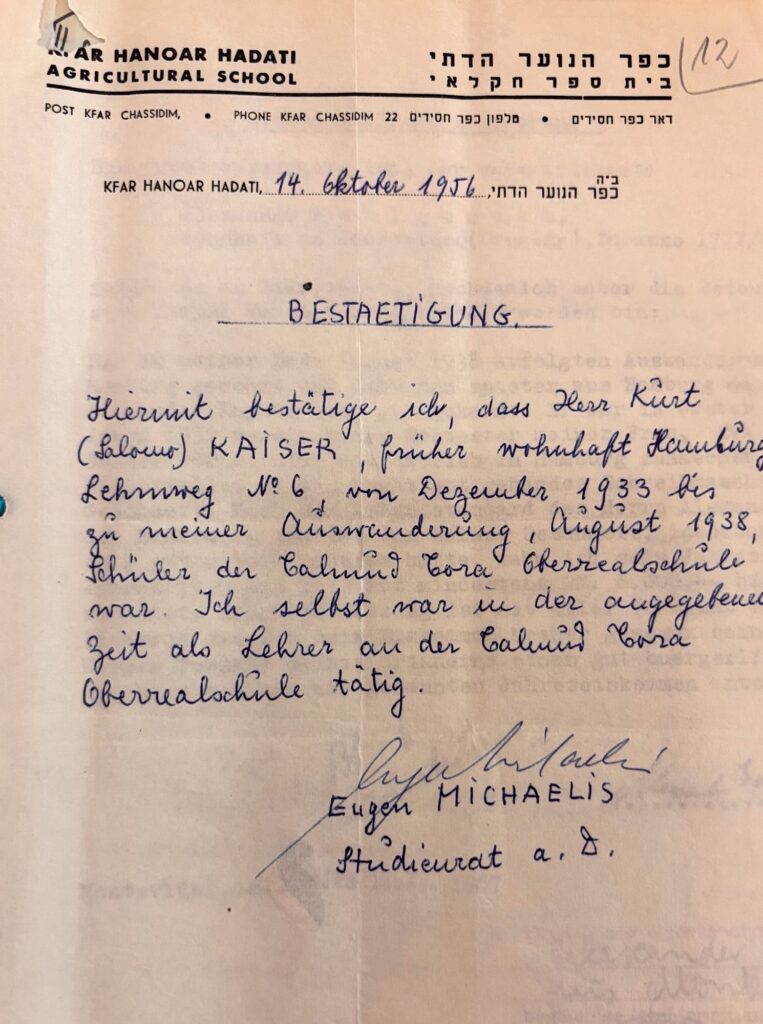 II
12
KFAR HANOAR HADATI
AGRICULTURAL SCHOOL
כפר הנוער הדתי
בית ספר חקלאי
POST KFAR CHASSIDIM, • PHONE KFAR CHASSIDIM 22 טלפון כפר חסידים • דאר כפר חסידים
ב״ה
KFAR HANOAR HADATI, 14. Oktober 1956 כפר הנוער הדתי,
BESTAETIGUNG.
Hiermit bestätige ich, dass Herr Kurt
(Salomo) KAISER, früher wohnhaft Hamburg
Lehmweg No 6, von Dezember 1933 bis
zu meiner Auswanderung, August 1938,
Schüler der Talmud Tora Oberrealschule
war. Ich selbst war in der angegebenen
Zeit als Lehrer an der Talmud Tora
Oberrealschule tätig.
Eugen MICHAELIS
Studienrat a. D.